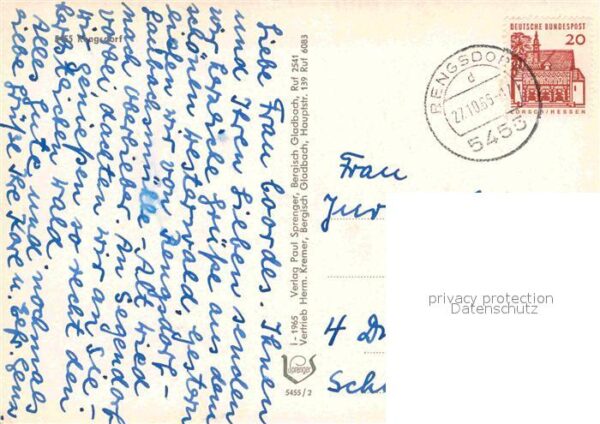 5455 Rengsdorf
Liebe Frau Coordes. Ihnen
und Ihren Lieben senden
wir herzliche Grüße aus dem
schönen Westerwald. Gestern
liefen wir von Rengsdorf -
nach Oberbieber. An Segendorf
vorbei dachten wir an Sie -
Wir genießen so recht den
Alles Gute und nochmals
liebe Grüße Ihre
I - 1965 Verlag Paul Sprenger, Bergisch Gladbach, Ruf 2541
Vertrieb Herm. Kremer, Bergisch Gladbach, Hauptstr. 139 Ruf 6083
Sprenger
5455/2
DEUTSCHE BUNDESPOST
20
LORSCH/HESSEN
RENGSDORF
d
27.10.66
5455
Frau
Jur
4 Dü
Sch
privacy protection
Datenschutz